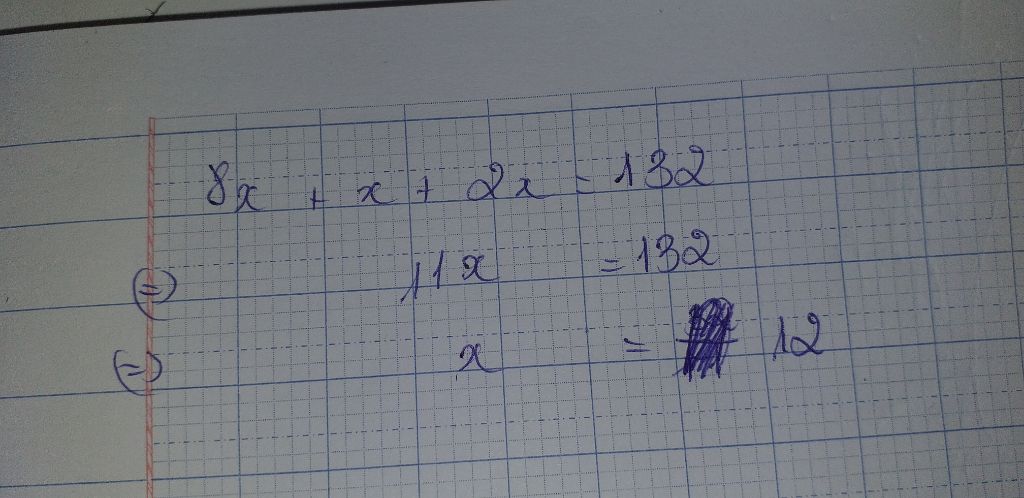 8x + x + 2x = 132
(=) 11x = 132
(=) x = 12